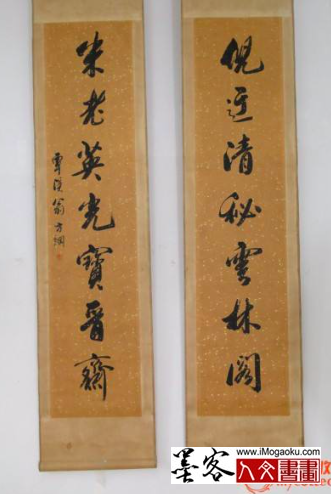 倪迂清秘雲林閣
米老英光寶晉齋
覃溪翁方綱
www.iMogaoku.com
墨客 人文書畫